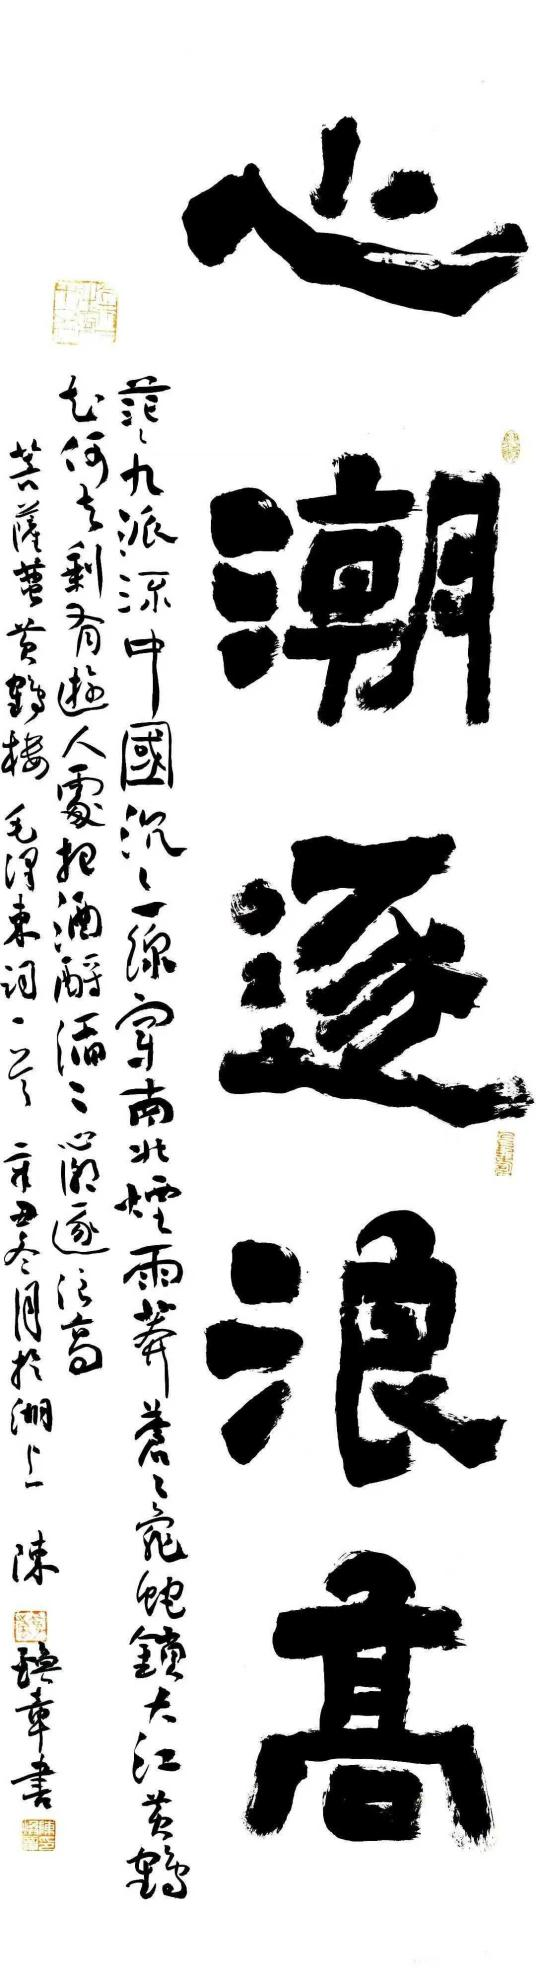 心潮逐浪高
茫々九派流中國沉々一線穿南北煙雨莽蒼々龜蛇鎖大江黃鶴
知何去剩有遊人處把酒酹滔々心潮逐浪高
菩薩蠻黃鶴樓 毛澤東詞一首 辛丑冬月於湖上 陳 章書